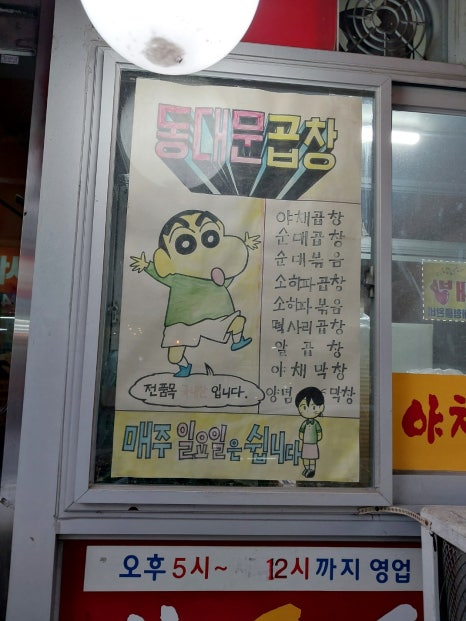 동대문곱창
야채곱창
순대곱창
순대볶음
소하파곱창
소하파볶음
떡사리곱창
알곱창
야채막창
양념 막창
전품목 입니다.
매주 일요일은 쉽니다
야채
오후 5시~ 12시까지 영업